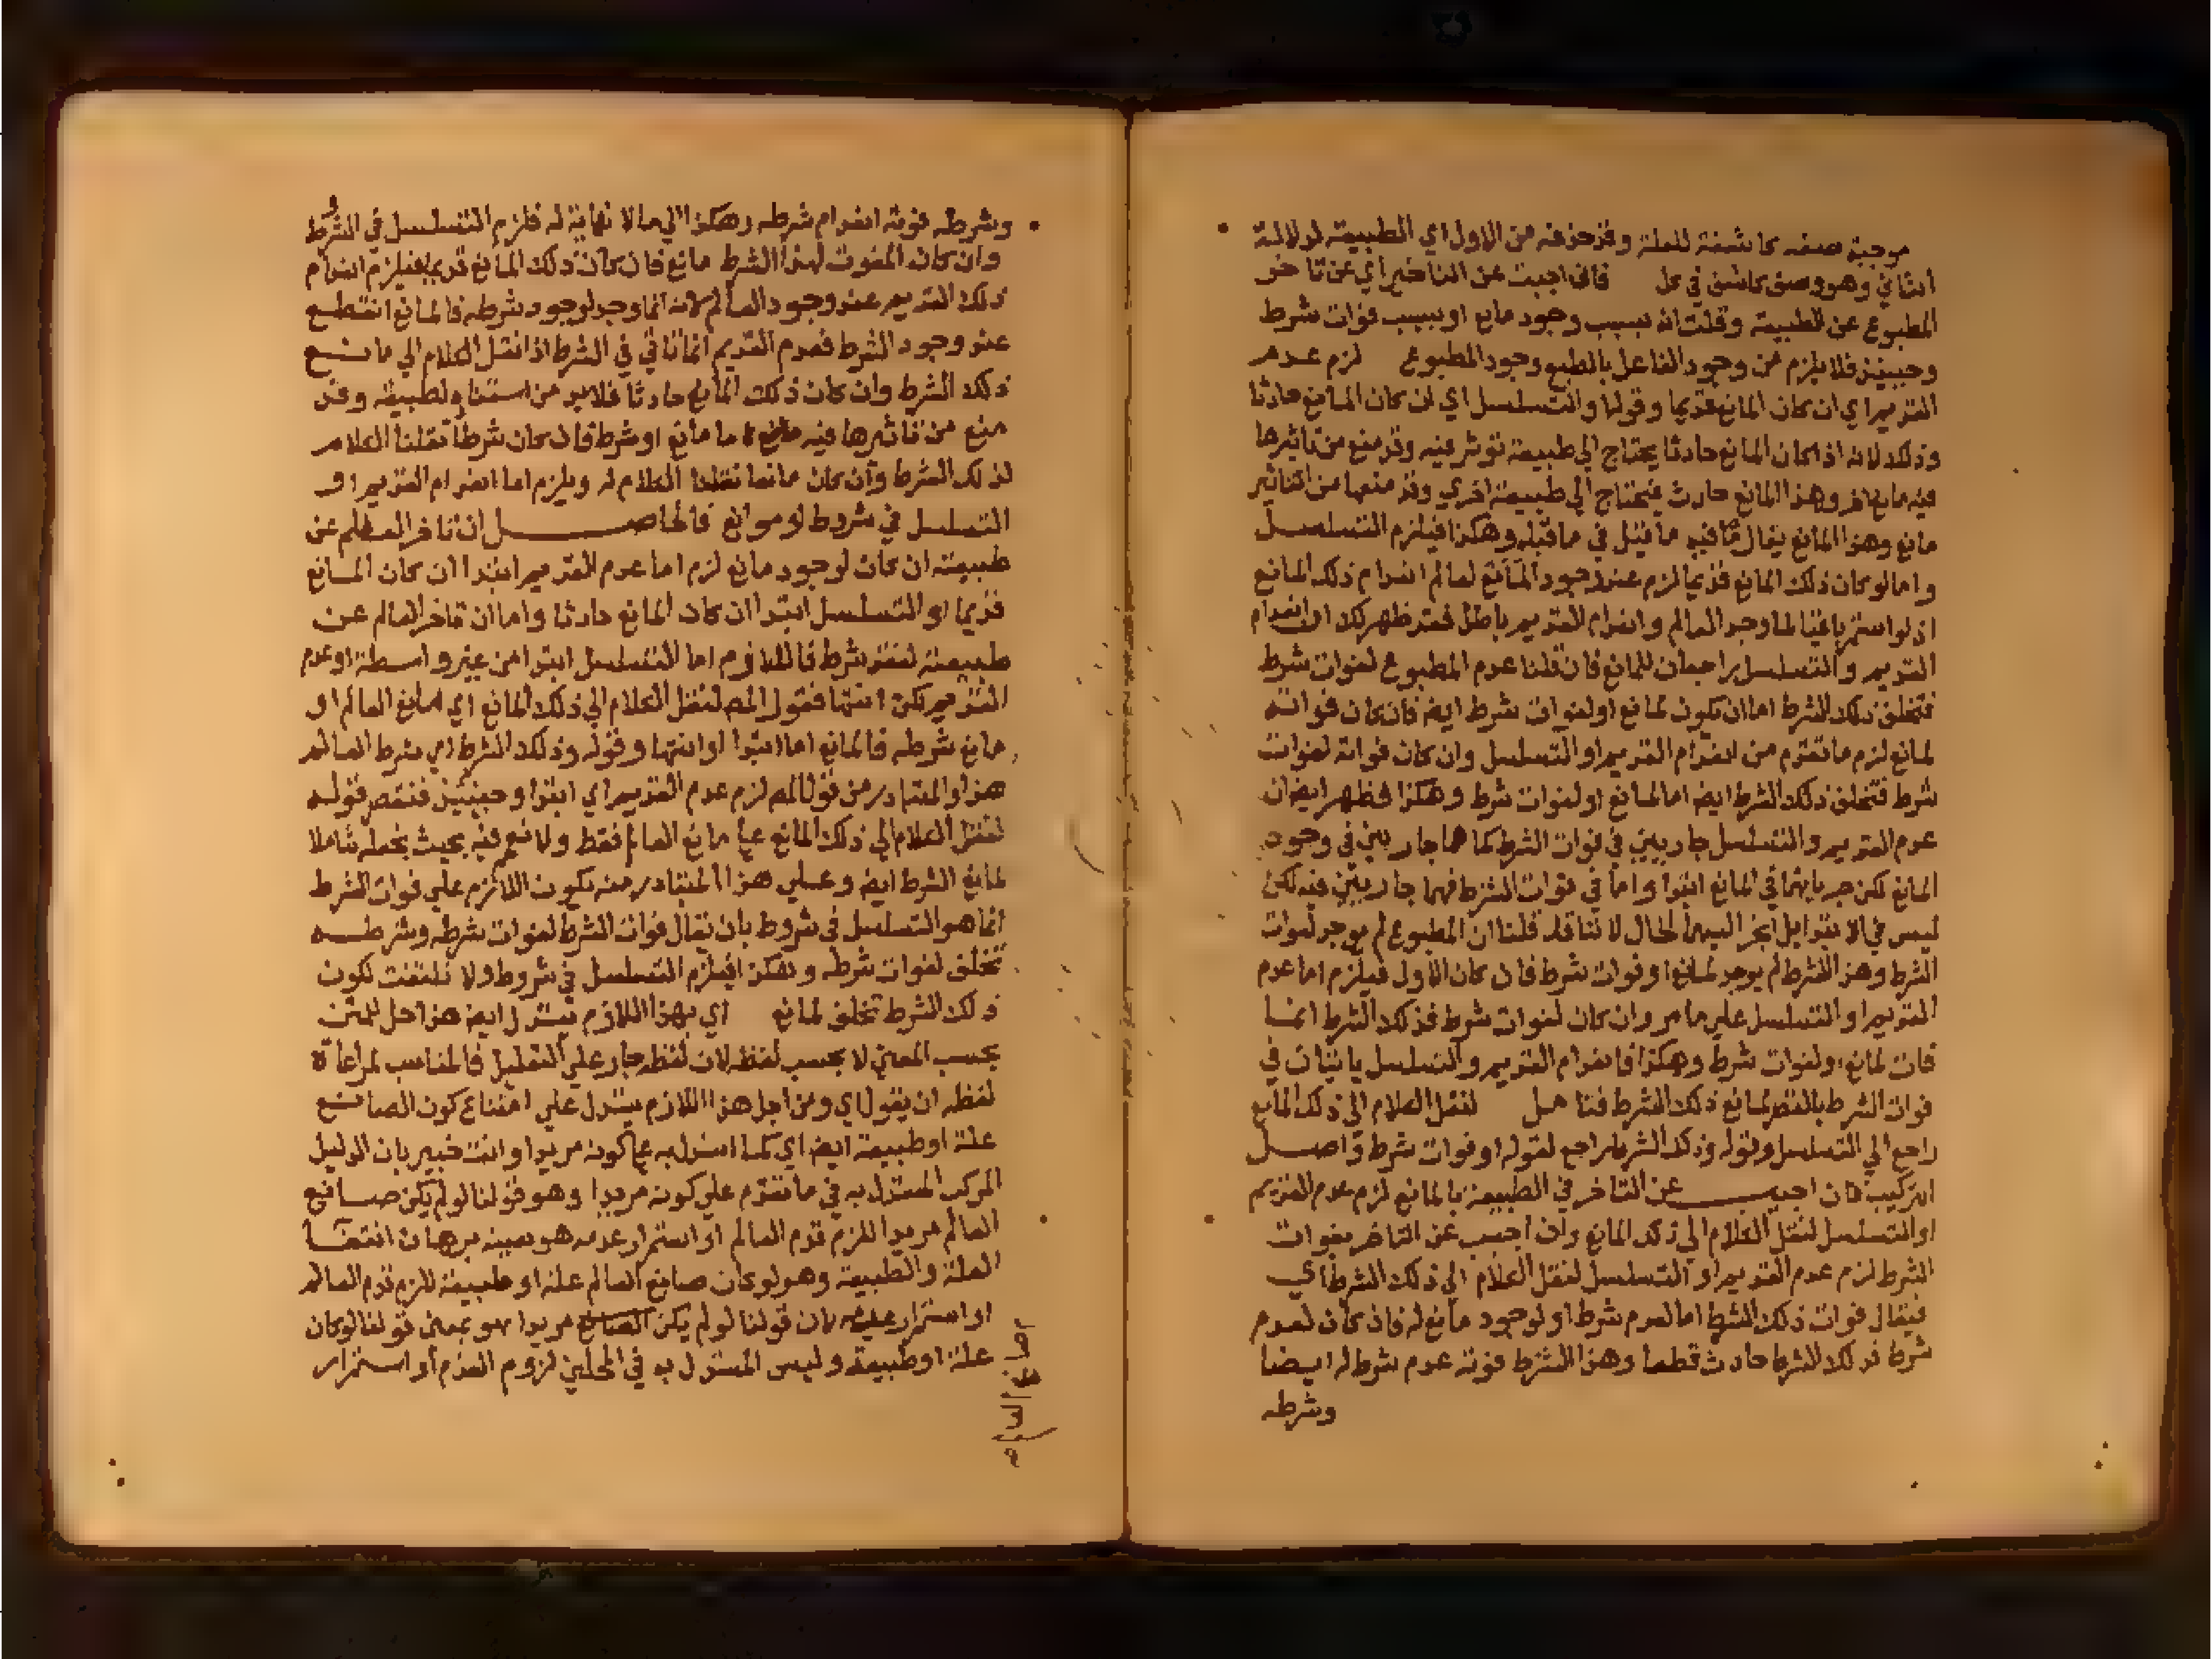 موجبة صفة كاشفة للعلة وقد حذفه من الاول اي الطبيعة لدلالة
الثاني وهو وصف كاشف في كل فان اجبت عن التاخير اي عن تاخر
المطبوع عن الطبيعة وقلت انه بسبب وجود مانع او بسبب فوات شرط
وحينئذ فلا يلزم من وجود الفاعل بالطبع وجود المطبوع لزم عدم
القديم اي ان كان المانع قديما وقوله والتسلسل اي ان كان المانع حادثا
وذلك لانه اذا كان المانع حادثا يحتاج الي طبيعة توثر فيه وقد منع من تاثيرها
فيه مانع اخر وهذا المانع حادث فيحتاج الي طبيعة اخري وقد منعها من التاثير
مانع وهذا المانع يقال فيه ما قيل في ما قبله وهكذا فيلزم التسلسل
واما لو كان ذلك المانع قديما لزم عند وجود العالم انعدام ذلك المانع
اذ لو استمر باقيا لما وجد العالم وانعدام القديم باطل فقد ظهر لك ان انعدام
القديم والتسلسل راجعان للمانع فان قلنا عدم المطبوع لفوات شرط
فتخلف ذلك الشرط اما ان يكون لمانع او لفوات شرط ايضا فان كان فواته
لمانع لزم ما تقدم من انعدام القديم او التسلسل وان كان فواته لفوات
شرط فتخلف ذلك الشرط ايضا اما لمانع او لفوات شرط وهكذا فظهر ايضا ان
عدم القديم والتسلسل جاريين في فوات الشرط كما هما جاريين في وجود
المانع لكن جريانهما في المانع ابتدا واما في فوات الشرط فهما جاريين فيه لكن
ليس في الابتدا بل اخر اليهما الحال لاننا قد قلنا ان المطبوع لم يوجد لفوات
الشرط وهذا الشرط لم يوجد لمانع او فوات شرط فان كان الاول فيلزم اما عدم
القديم او التسلسل علي ما مر وان كان لفوات شرط فذلك الشرط انما
فات لمانع او لفوات شرط وهكذا فانعدام القديم والتسلسل ياتيان في
فوات الشرط بالنظر لمانع ذلك الشرط فتامل لنقل الكلام الي ذلك المانع
راجع الي التسلسل وقوله وذلك الشرط راجع لقوله او فوات شرط واصل
التركيب فان اجيب عن التاخر في الطبيعة بالمانع لزم عدم القديم
او التسلسل لنقل الكلام الي ذلك المانع وان اجيب عن التاخر بفوات
الشرط لزم عدم القديم او التسلسل لنقل الكلام الي ذلك الشرط اي
فيقال فوات ذلك الشرط اما لعدم شرط او لوجود مانع له فان كان لعدم
شرط فذلك الشرط حادث قطعا وهذا الشرط فوته عدم شرط له ايضا
وشرطه
وشرطه فوته انعدام شرطه وهكذا الي ما لا نهاية له فلزم التسلسل في الشروط
وان كان المفوت لهذا الشرط مانع فان كان ذلك المانع قديما فيلزم انعدام
ذلك القديم عند وجود العالم لانه انما وجد لوجود شرطه فالمانع انقطع
عند وجود الشرط فعدم القديم انما ياتي في الشرط اذا نقل الكلام الي مانع
ذلك الشرط وان كان ذلك المانع حادثا فلا بد من استناده لطبيعة وقد
منع من تاثيرها فيه اما مانع او شرط فان كان شرطا نقلنا الكلام
لذلك الشرط وان كان مانعا نقلنا الكلام له ويلزم اما انعدام القديم او
التسلسل في شروط او موانع فالحاصل ان تاخر العالم عن
طبيعته ان كان لوجود مانع لزم اما عدم القديم ابتدا ان كان المانع
قديما او التسلسل ابتدا ان كان المانع حادثا واما ان تاخر العالم عن
طبيعته لفقد شرط فاللازم اما التسلسل ابتدا من غير واسطة او عدم
القديم لكن انتها فقول المص لنقل الكلام الي ذلك المانع اي مانع العالم او
مانع شرطه فالمانع اما ابتدا او انتها وقوله وذلك الشرط اي شرط العالم
هذا والمتبادر من قول المص لزم عدم القديم اي ابتدا وحينئذ فنقصر قوله
لنقل الكلام الي ذلك المانع علي مانع العالم فقط ولا نعمم فيه بحيث نجعله شاملا
لمانع الشرط ايضا وعلي هذا المتبادر منه يكون اللازم علي فوات الشرط
انما هو التسلسل في شروط بان يقال فوات الشرط لفوات شرطه وشرطه
تخلف لفوات شرطه وهكذا فيلزم التسلسل في شروط ولا نلتفت لكون
ذلك الشرط تخلف لمانع اي بهذا اللازم يستدل ايضا هذا حل للمتن
بحسب المعني لا بحسب لفظه لان لفظه جار علي التعليل فالمناسب لمراعاة
لفظه ان يقول اي ومن اجل هذا اللازم يستدل علي امتناع كون الصانع
علة او طبيعة ايضا اي كما استدل به علي كونه مريدا وانت خبير بان الدليل
المركب المستدل به في ما تقدم علي كونه مريدا وهو قولنا لو لم يكن صانع
العالم مريدا للزم قدم العالم او استمرار عدمه هو بعينه برهان انتفا
العلة والطبيعة وهو لو كان صانع العالم علة او طبيعة للزم قدم العالم
او استمرار عدمه لان قولنا لو لم يكن الصانع مريدا هو بمعني قولنا لو كان
علة او طبيعة وليس المستدل به في المحلين لزوم القدم او استمرار